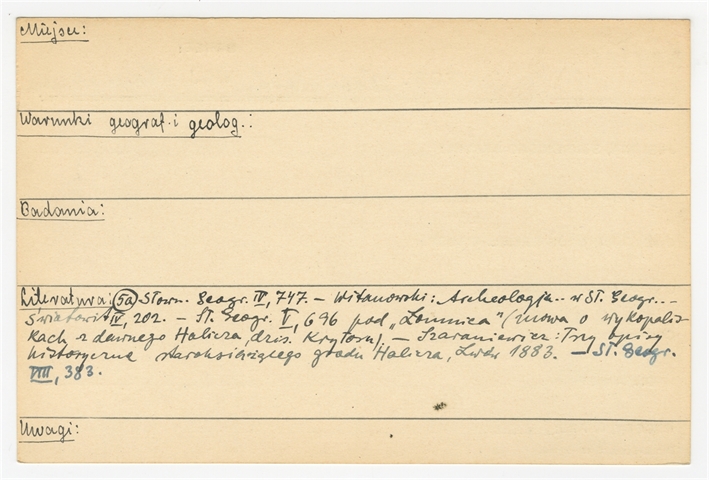 Miejsce:
Warunki geograf. i geolog.:
Badania:
Literatura: (5a) Słown. Geogr. IV, 747. – Witanowski: Archeologja.. w Sł. Geogr.. –
Światowit IV, 202. – Sł. Geogr. V, 696 pod „Łomnica" (mowa o wykopalis-
kach z dawnego Halicza, dziś. Kryłosu). – Szaraniewicz: Trzy opisy
historyczne staroksiążęcego grodu Halicza, Lwów 1883. – Sł. Geogr.
VIII, 383.
Uwagi: